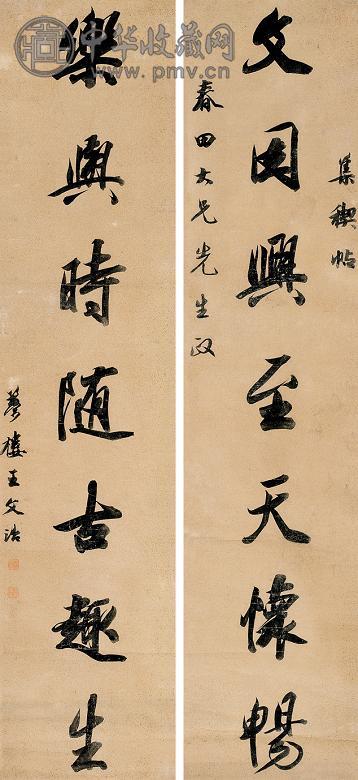 集禊帖
文因興至天懷暢
春田大兄先生政
樂與時随古趣生
夢樓王文治
中华收藏网
www.pmv.cn